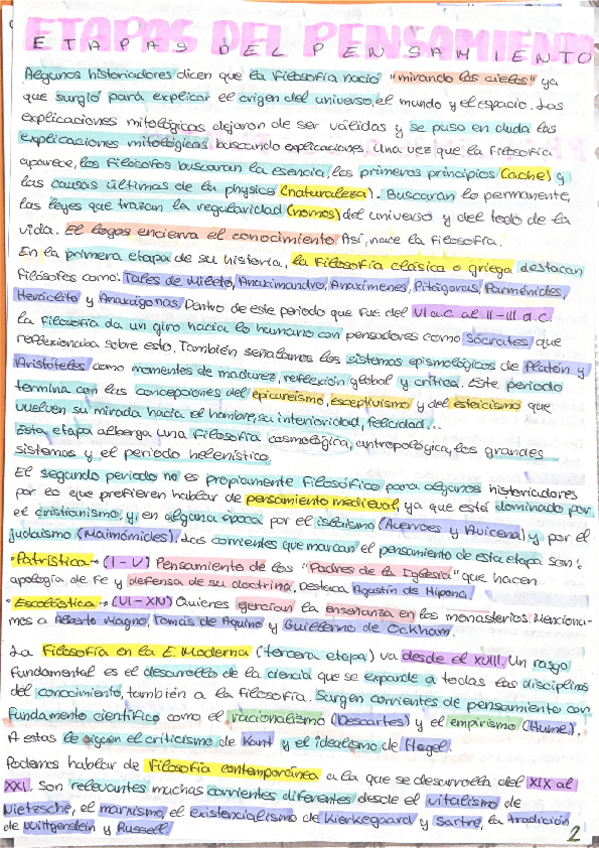 ETAPAS DEL PENSAMIENTO
Algunos historiadores dicen que la filosofía nació "mirando los cielos" ya
que surgió para explicar el origen del universo, el mundo y el espacio. Las
explicaciones mitológicas dejaron de ser válidas y se puso en duda las
explicaciones mitológicas buscando explicaciones. Una vez que la filosofía
aparece, los filósofos buscaran la esencia, los primeros principios (ache) y
las causas últimas de la physics (naturaleza). Buscaran lo permanente,
las leyes que trazan la regularidad (nomos) del universo y del todo de la
vida. El logos encierra el conocimiento. Así, nace la filosofía.
En la primera etapa de su historia, la filosofía clásica o griega destacan
filósofos como: Tales de Mileto, Anaximandro, Anaxímenes, Pitágoras, Parménides,
Heráclito y Anaxágoras. Dentro de este periodo que fue del VI a.c. al II-III d.c.
la filosofía da un giro hacia lo humano con pensadores como Sócrates, que
reflexionaba sobre esto. También señalamos los sistemas epismológicos de Platón y
Aristóteles como momentos de madurez, reflexión global y crítica. Este periodo
termina con las concepciones del epicureísmo, escepticismo y del estoicismo que
vuelven su mirada hacia el hombre, su interioridad, felicidad...
Esta etapa alberga una filosofía cosmológica, antropológica, los grandes
sistemas y el periodo helenístico.
El segundo periodo no es propiamente filosófico para algunos historiadores
por lo que prefieren hablar de pensamiento medieval, ya que está dominado por
el cristianismo, y, en alguna época por el islamismo (Averroes y Avicena) y por el
judaísmo (Maimómides). Las corrientes que marcan el pensamiento de esta etapa son:
·Patrística → (I-V) Pensamiento de los "Padres de la Iglesia" que hacen
apología de fe y defensa de su doctrina. Destaca Agustín de Hipona.
·Escolástica → (VI-XIV) Quienes ejercían la enseñanza en los monasterios. Menciona-
mos a Alberto Magno, Tomás de Aquino y Guillermo de Ockham.
La Filosofía en la E. Moderna (tercera etapa) va desde el XVIII. Un rasgo
fundamental es el desarrollo de la ciencia que se expande a todas las disciplinas
del conocimiento, también a la filosofía. Surgen corrientes de pensamiento con
fundamento científico como el racionalismo (Descartes) y el empirismo (Hume).
A estas le siguen el criticismo de Kant y el idealismo de Hegel.
Podemos hablar de Filosofía contemporánea a la que se desarrolla del XIX al
XXI. Son relevantes muchas corrientes diferentes desde el vitalismo de
Nietzsche, el marxismo, el existencialismo de Kierkegaard y Sartre, la tradición
de Wittgenstein y Russell
2